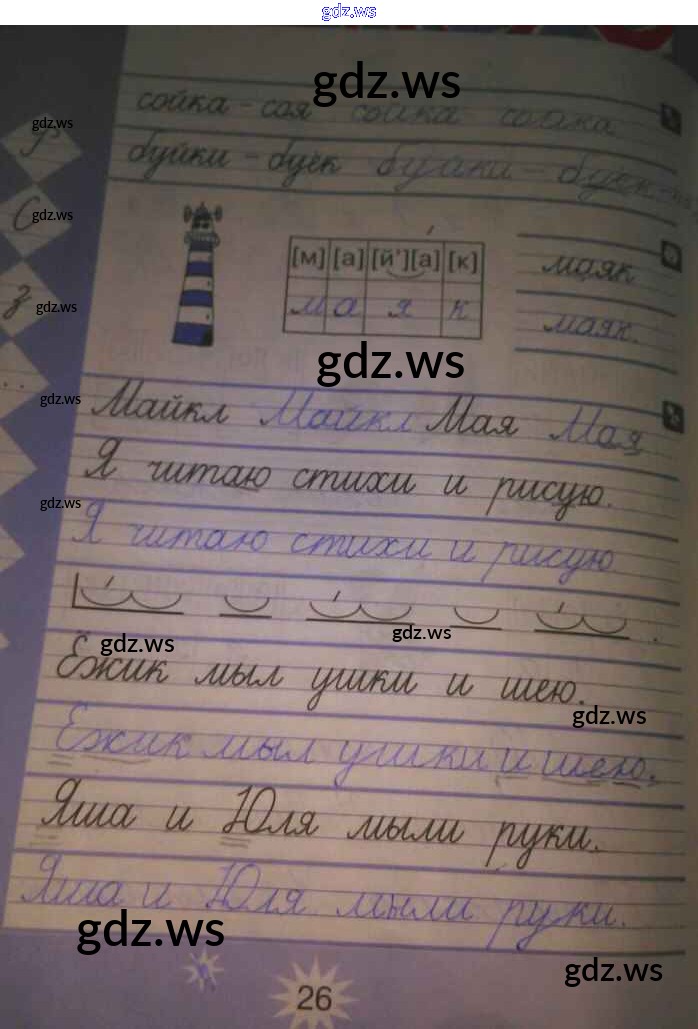 gdz.ws
gdz.ws
сойка - соя сойка
gdz.ws
буйки - буёк
С
gdz.ws
[м] [а] [й'][а] [к]
маяк
м а я к
з
gdz.ws
маяк.
gdz.ws
gdz.ws
Майкл Майкл Мая Мая
Я читаю стихи и рисую.
gdz.ws
Я читаю стихи и рисую
gdz.ws
gdz.ws
Ёжик мыл ушки и шею.
gdz.ws
Ёжик мыл ушки и шею.
Яша и Юля мыли руки.
Яша и Юля мыли руки.
gdz.ws
gdz.ws
26